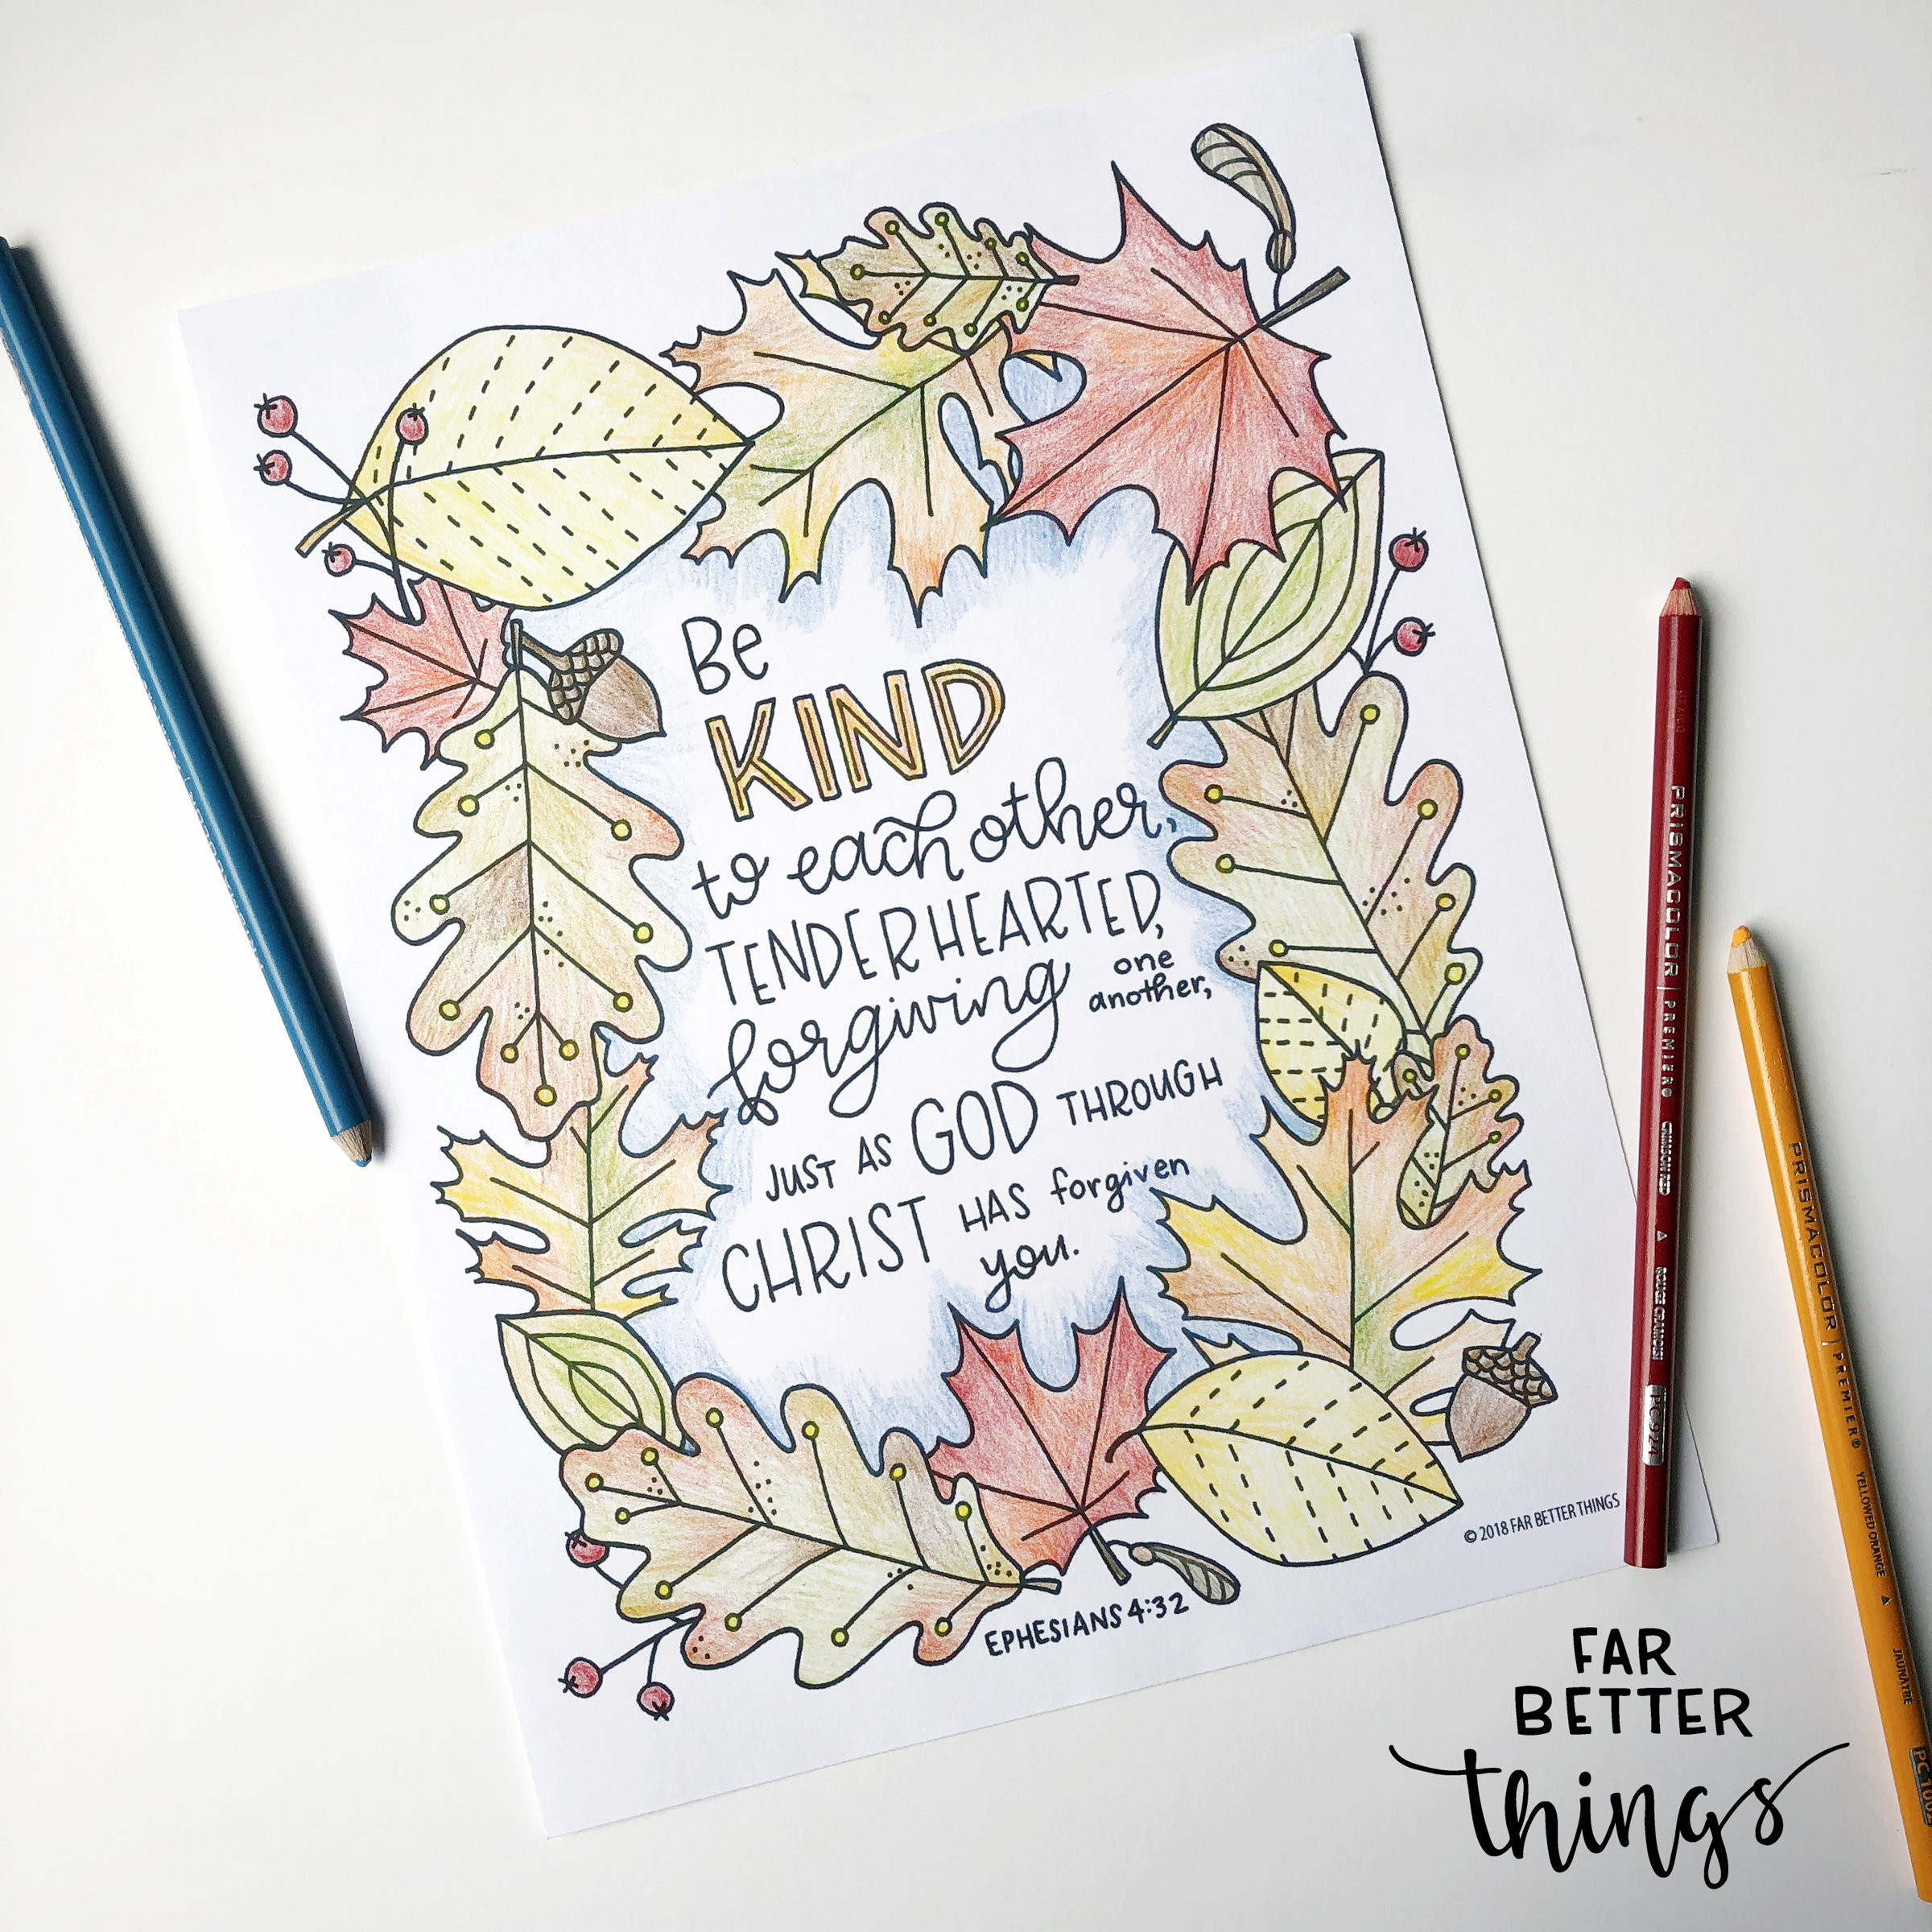 Be
KIND
to each other,
TENDERHEARTED,
forgiving one another,
JUST AS GOD THROUGH
CHRIST HAS forgiven
you.
© 2018 FAR BETTER THINGS
EPHESIANS 4:32
PRISMACOLOR | PREMIER® CRIMSON RED ROUGE CRAMOISI PC 924
PRISMACOLOR | PREMIER® YELLOWED ORANGE JAUNÂTRE
FAR
BETTER
things